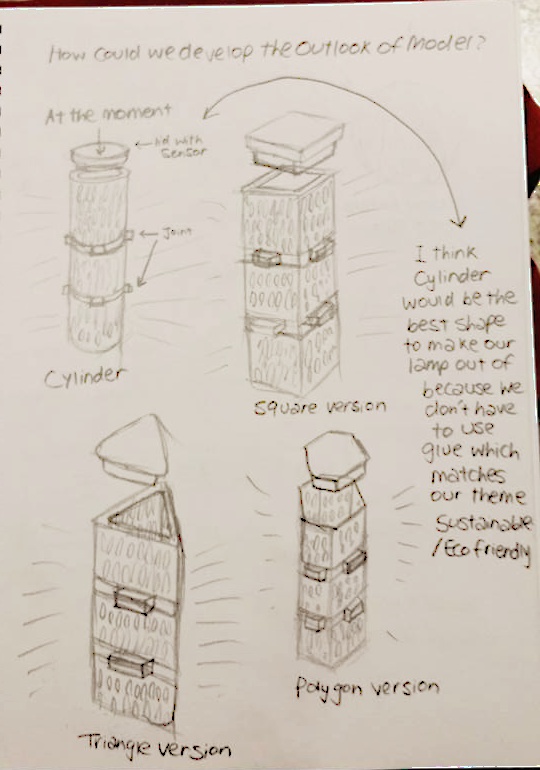 How could we develop the Outlook of Model?
At the moment
lid with
sensor
Joint
Cylinder
Square version
I think
Cylinder
would be the
best shape
to make our
lamp out of
because we
don't have
to use
glue which
matches
our theme
Sustainable
/Ecofriendly
Triangle version
Polygon version